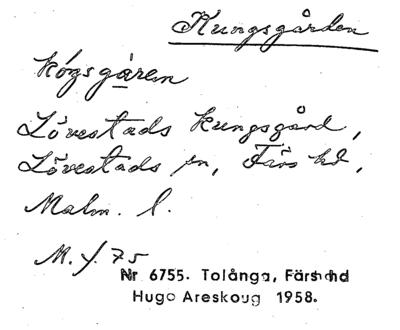 Kungsgården
kógsgáren
Lövestads kungsgård,
Lövestads sn, Färs hd,
Malm. l.
M. f. 75
Nr 6755. Tolånga, Färshd
Hugo Areskoug 1958.